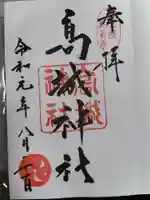 奉拝
高城神社
令和元年八月二日